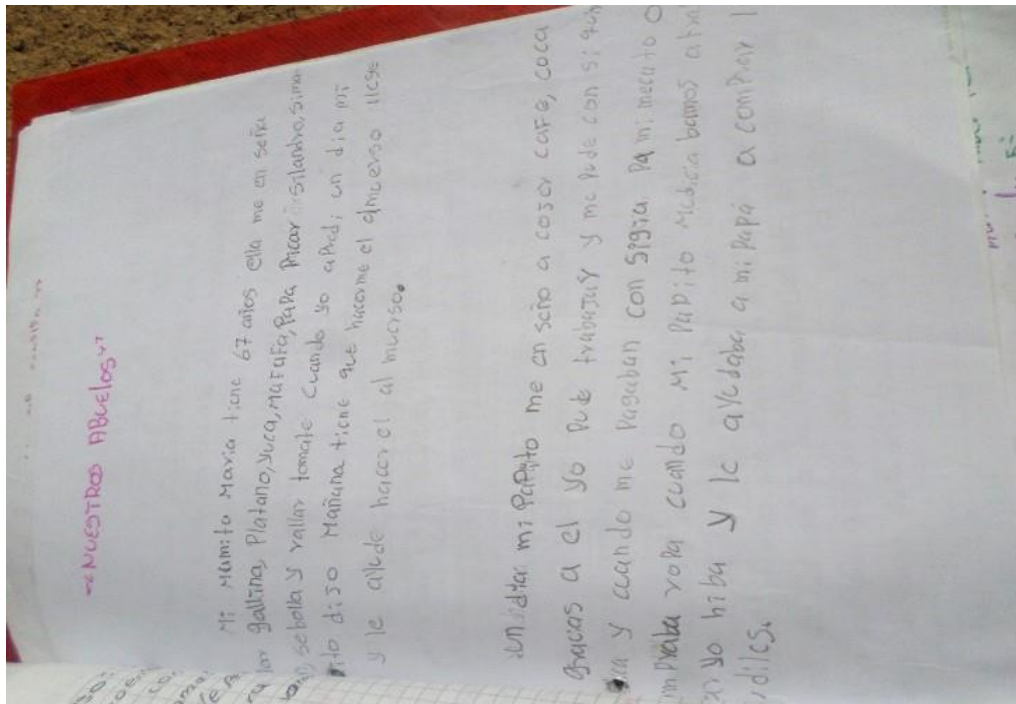 ~NUESTROS ABUELOS~
Mi Mamita Maria tiene 67 años ella me en señu
lar gallina, Platano, Yuca, Marafa, PaPa Picar silandro, sima
sebolla y rallar tomate Cuando yo aPrdi un dia mi
ito diso Mañana tiene que hacorme el almuerso llege
y le allude hacer el al muerso.
un dia mi PaPito me en seño a coser cafe, coca
gracias a el yo Pude trabajar y me Pude con si gui
y cuando me Pagaban con sigia Pa mi mecuto o
mPraba ropa cuando Mi PaPito Medicia bamos a trni
ar yo hiba y le ayudaba a mi PaPá a comPrar l
diles.